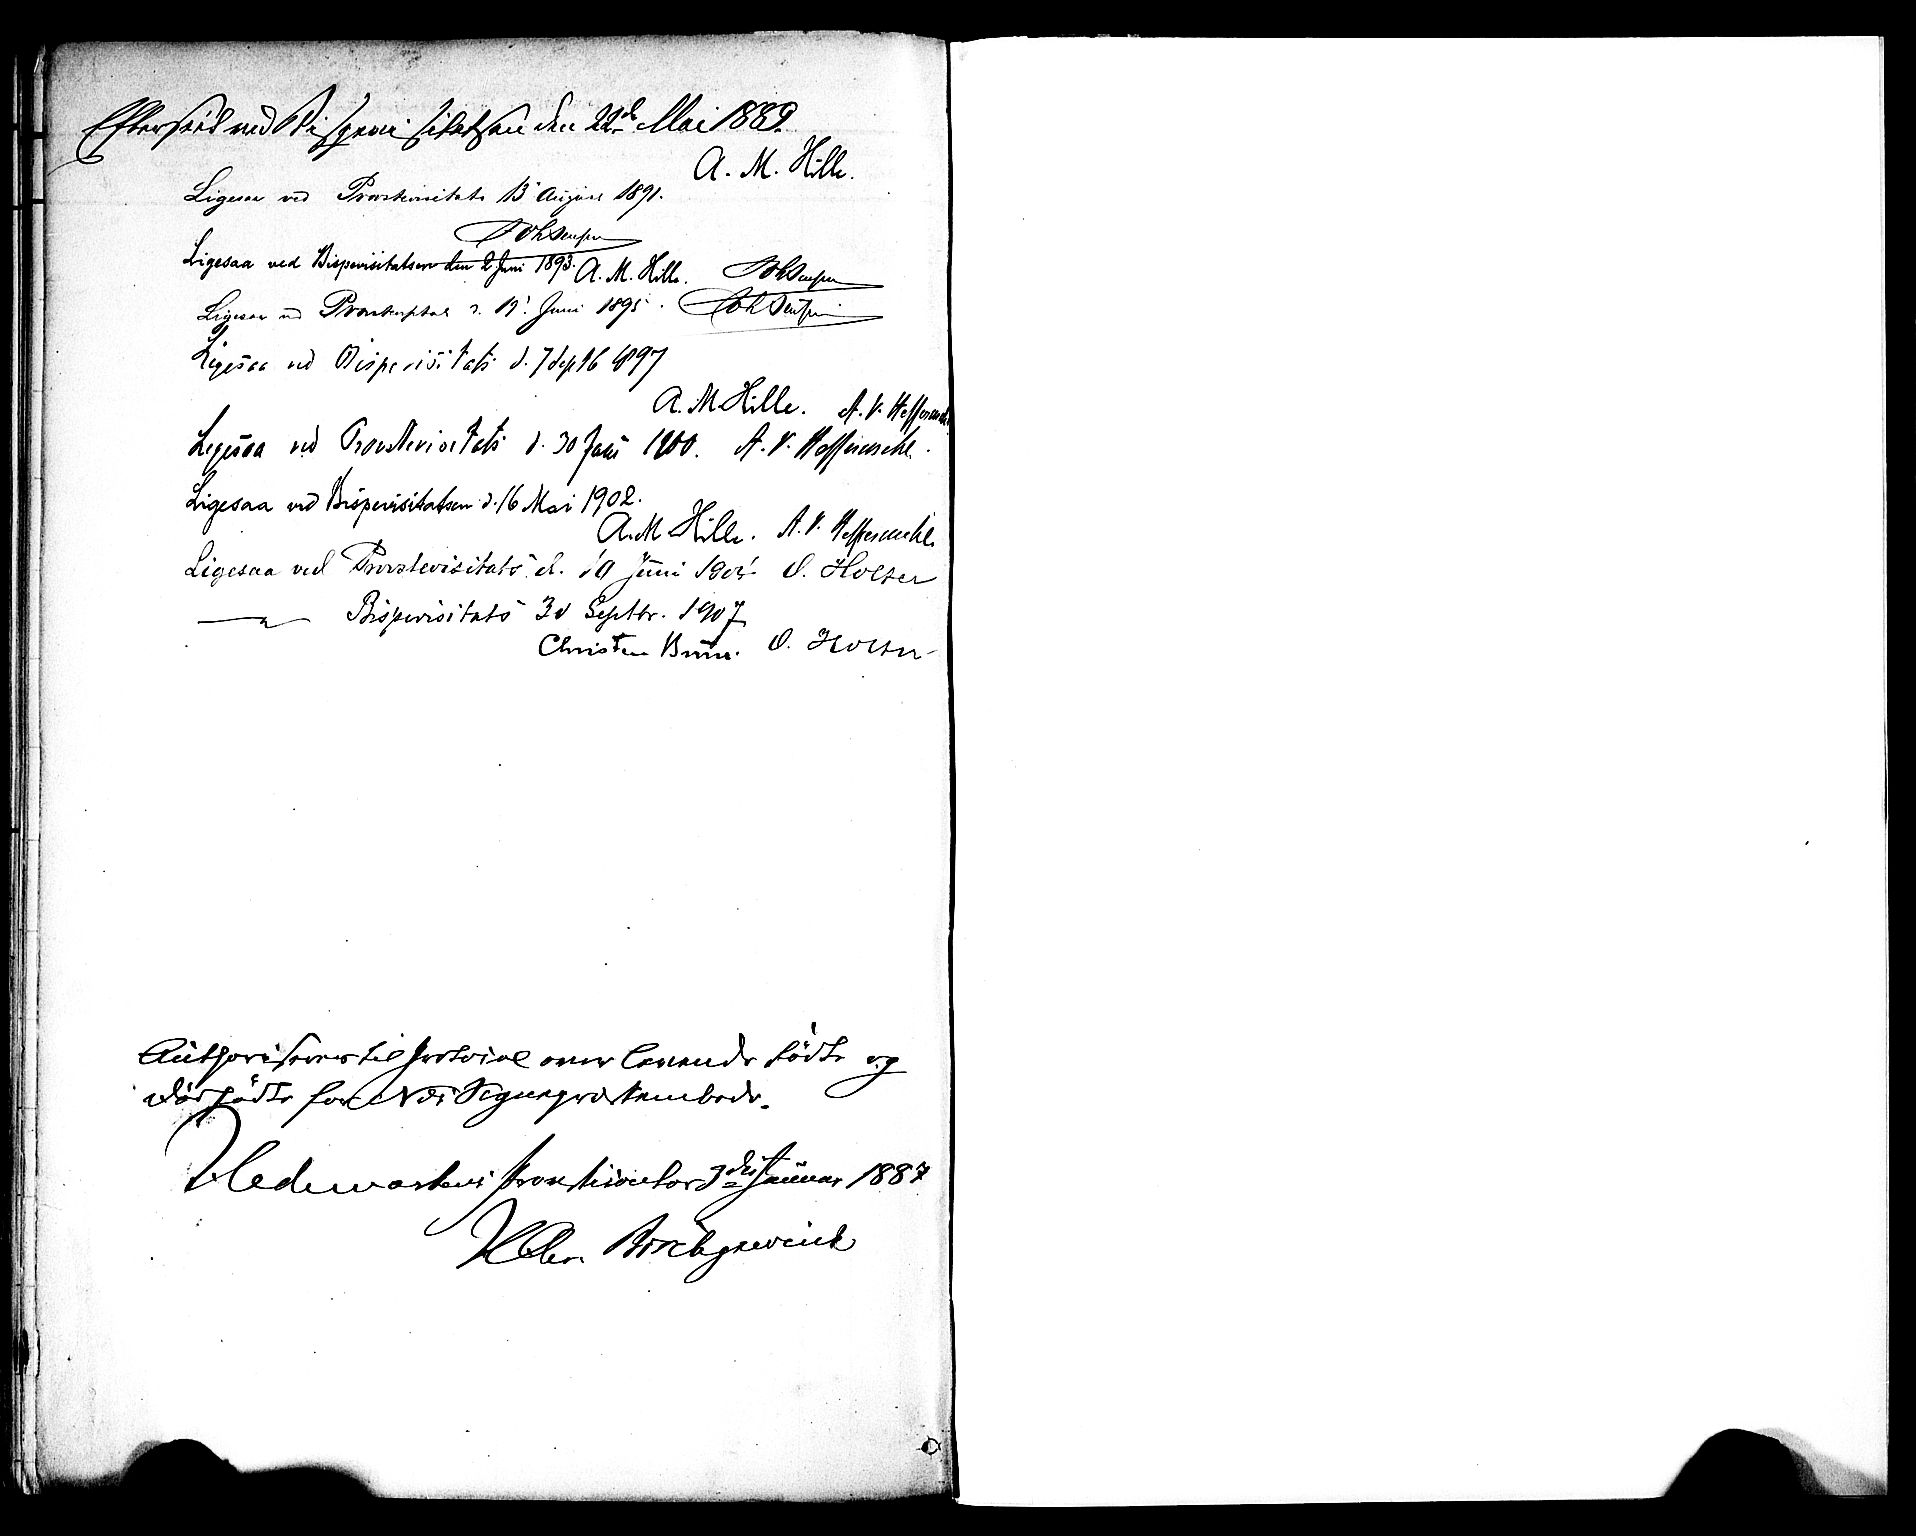 Efterseet ved Bispevisitatsen den 22de Mai 1889.
A. M. Hille.
Ligesaa ved Provstevisitats 13 August 1891.
Ligesaa ved Bispevisitatsen den 2 Juni 1893. A. M. Hille.
Ligesaa ved d. 19. Juni 1895.
Ligesaa ved Bispevisitats d. 7 Sept 1897
A. M. Hille. A. V. Heffermehl
Ligesaa ved Provstevisitats d. 30 Juni 1900. A. V. Heffermehl.
Ligesaa ved Bispevisitatsen d. 16 Mai 1902.
A. M. Hille. A. V. Heffermehl.
Ligesaa ved Provstevisitats d. 10 Juni O. Holter
— " — Bispevisitats 30 Septbr. 1907
Christen Brun. O. Holter
Authoriseres til Protocol over levende fødte og
dødfødte for Næs Sognepræstembede.
Hedemarkens Provstikontor 3die Januar 1887